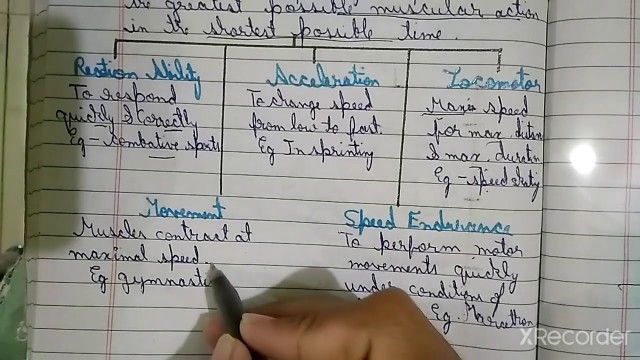 the greatest possible muscular action
in the shortest possible time.
Reation Ability
To respond
quickly & correctly
Eg - Combative sports
Acceleration
To change speed
from low to fast.
Eg In sprinting
Locomotor
Maxi speed
for max. distan
& max. duration
Eg - speed
Movement
Muscles contract at
maximal speed.
Eg gymnastic
Speed Endurance
To perform motor
movements quickly
under conditions of
Eg. Marathon
XRecorder